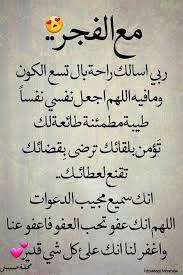 مع الفجر..
ربي اسالك راحة بال تسع الكون
ومافيه اللهم اجعل نفسي نفساً
طيبة مطمئنة طائعة لك
تؤمن بلقائك ترضى بقضائك
تقنع لعطائك..
انك سميع مجيب الدعوات
اللهم انك عفو تحب العفو فاعفو عنا
واغفر لنا انك على كل شي قدير